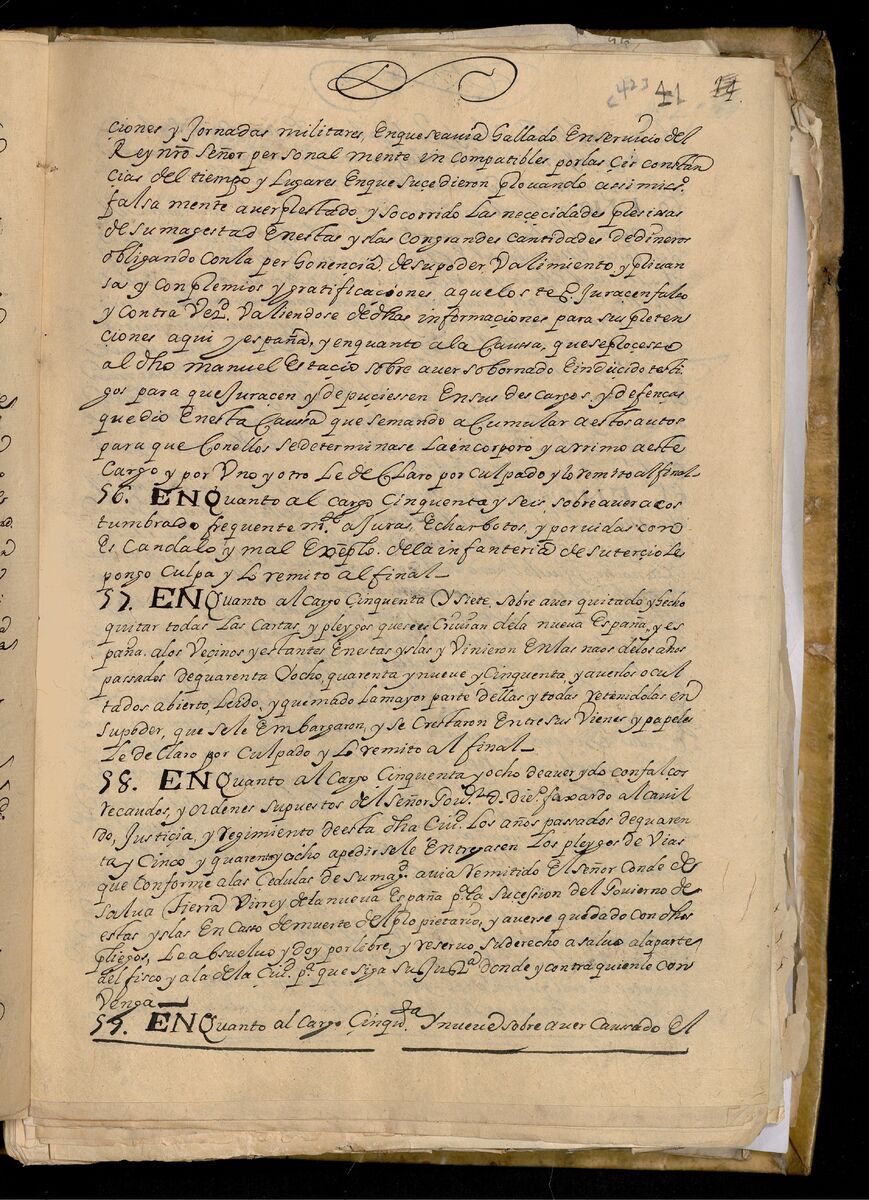 423 41 14
çiones y Jornadas militares, Enqueseavia Gallado Enservicio del
Rey nrō Señor personal mente in compatibles porlas çir constan
çias del tiempo y Lugares Enque sucedieron provando assimismo
falsa mente averprestado y socorrido Las neçeçidades preçissas
de su magestad Enestas yslas Congrandes Cantidades dedineros
obligando conla per sonençia desupoder Valimiento, y privan
sa y Conpremios y gratificaciones, aquelos tesº Juracenfalso
y contra Verd. Valiendose dedhas informaçiones para sus preten
çiones aqui y españa, y enquanto ala Caussa, queseproçesso
al dho manuel Estaçio sobre aver sobornado Einduçido testi
gos para que Juracen y depuciessen Ensus descargos, y defenças
que dio Enesta Caussa que semando aCumular aestos autos
para que Conellos sedeterminase Laencorporo y arrimo aeste
Cargo y por Uno y otro Le deClaro por culpado y lo remito alfinal
56. ENQuanto al cargo Çinquenta y seis, sobre avera cos
tumbrado frequente mte. aJuras, Echarbotos, y porvidas con
Es Candalo y mal Exemplo. dela infanteria de su terçio Le
pongo Culpa y Lo remito al final
57. ENQuanto al Cargo Çinquenta Y siete, sobre aver quitado y hecho
quitar todas Las Cartas, y pleygos quese escrivian dela nueva España, y es
paña. alos Veçinos yestantes Enestas yslas y Vinieron Enlas naos delos años
passados dequarenta Yocho, quarenta y nueve y Çinquenta, y averlos ocul
tados abierto, Leido, y quemado Lamayor parte dellas y todas retenidolas en
supoder, que sele Embargaron, y se Crestaron Entresus Vienes y papeles
Le de Claro por Culpado y Lo remito al final
58. ENQuanto al Cargo Çinquenta yocho deaver ydo confalços
recaudos, y ordenes supuestos del Señor Govor. D. Diego. faxardo al cavil
do, Justiçia, y regimiento deesta dha Ciud. Los años passados dequaren
ta y Cinco y quarentayocho apedir sele Entregasen Los pleygos de Vias
que Conforme alas Çedulas de Sumagd. avia remitido El Señor Conde de
Salva tierra Virrey dela nueva España pª. La Sucession del Govierno de
estas yslas En Caso de muerte del proprietario, y averse quedado con dhos
pliegos, Le absuelvo y doy porlibre, y reservo suderecho a salvo alaparte
del fisco y ala dela Ciud. pª. que siga su Justª donde y contra quienle con
Venga
59. ENQuanto al Cargo Çinqta. Y nueve sobre aver Causado El